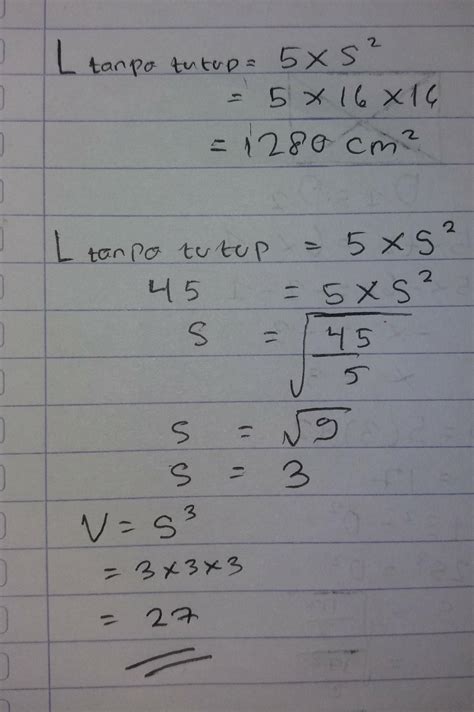 L tanpa tutup = 5 x s²
= 5 x 16 x 16
= 1280 cm²
L tanpa tutup = 5 x s²
45 = 5 x s²
s = √45/5
s = √9
s = 3
V = s³
= 3x3x3
= 27